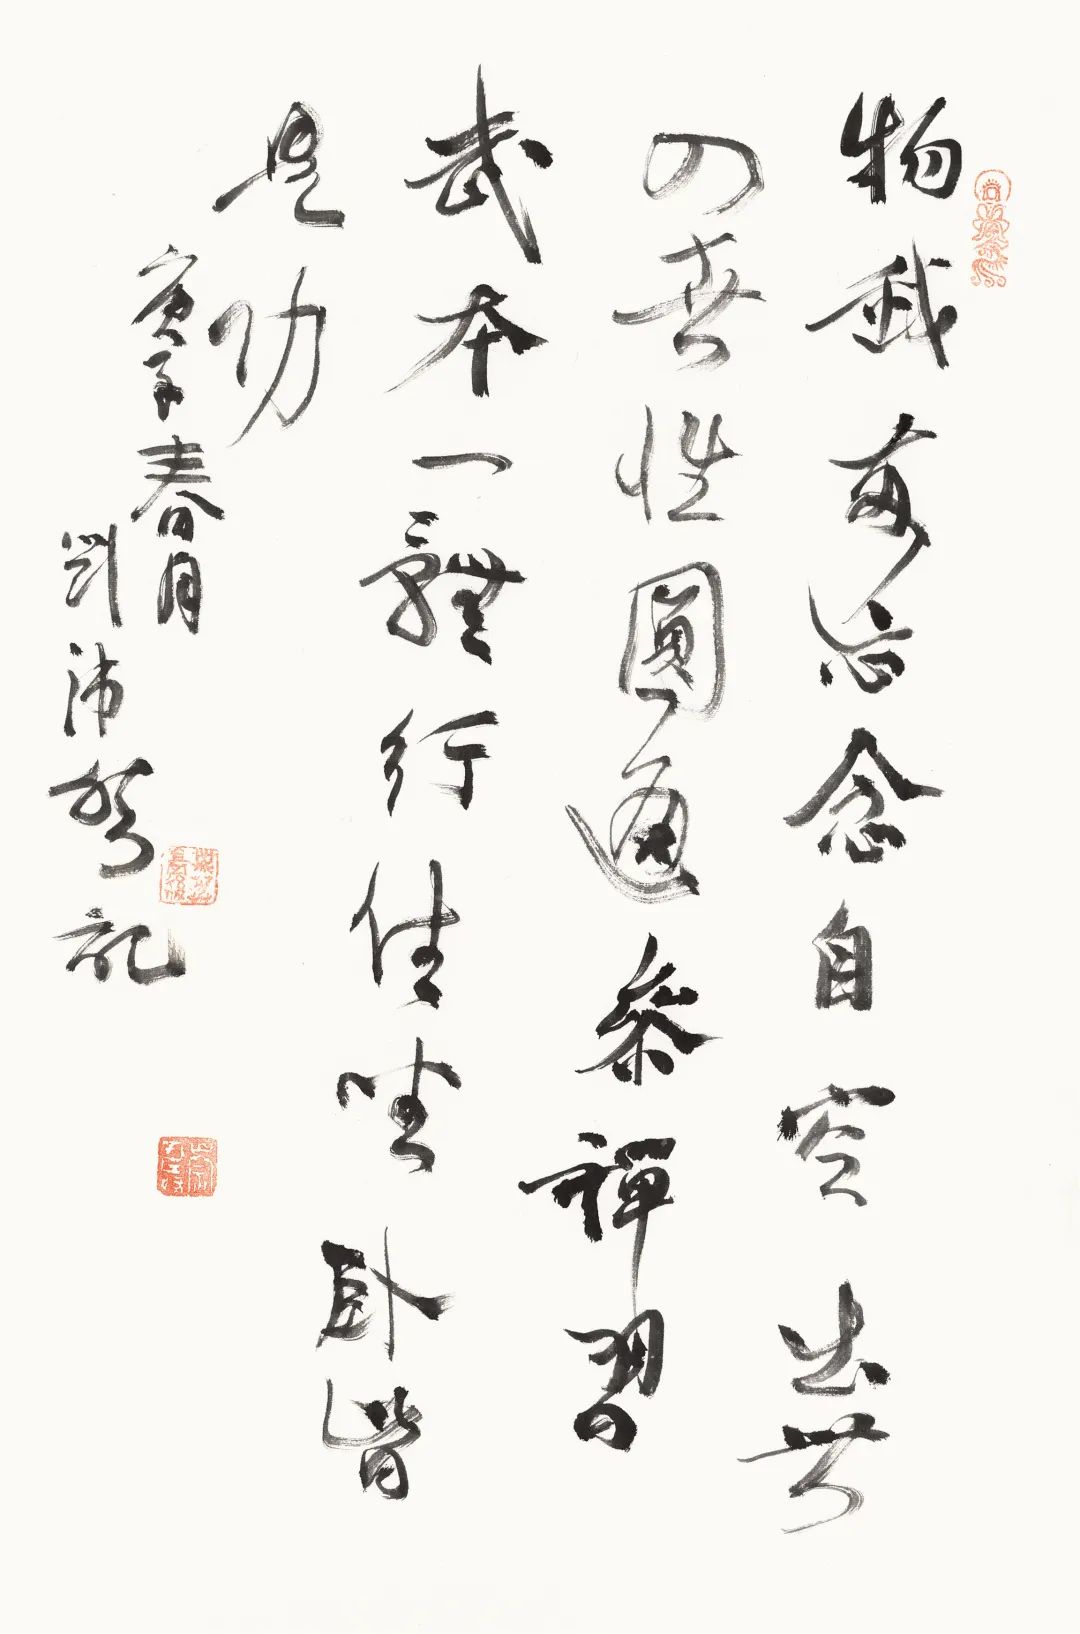 物我兩忘念自空出世
性圓通參禪習
武本一體行住坐卧皆
是功
庚子春月
劉沛記